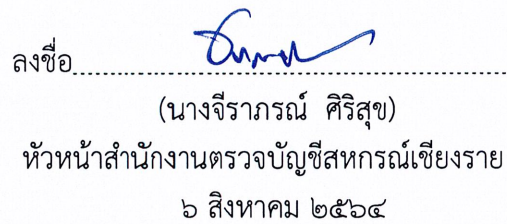 ลงชื่อ
(นางจีราภรณ์ ศิริสุข)
หัวหน้าสำนักงานตรวจบัญชีสหกรณ์เชียงราย
๖ สิงหาคม ๒๕๖๔